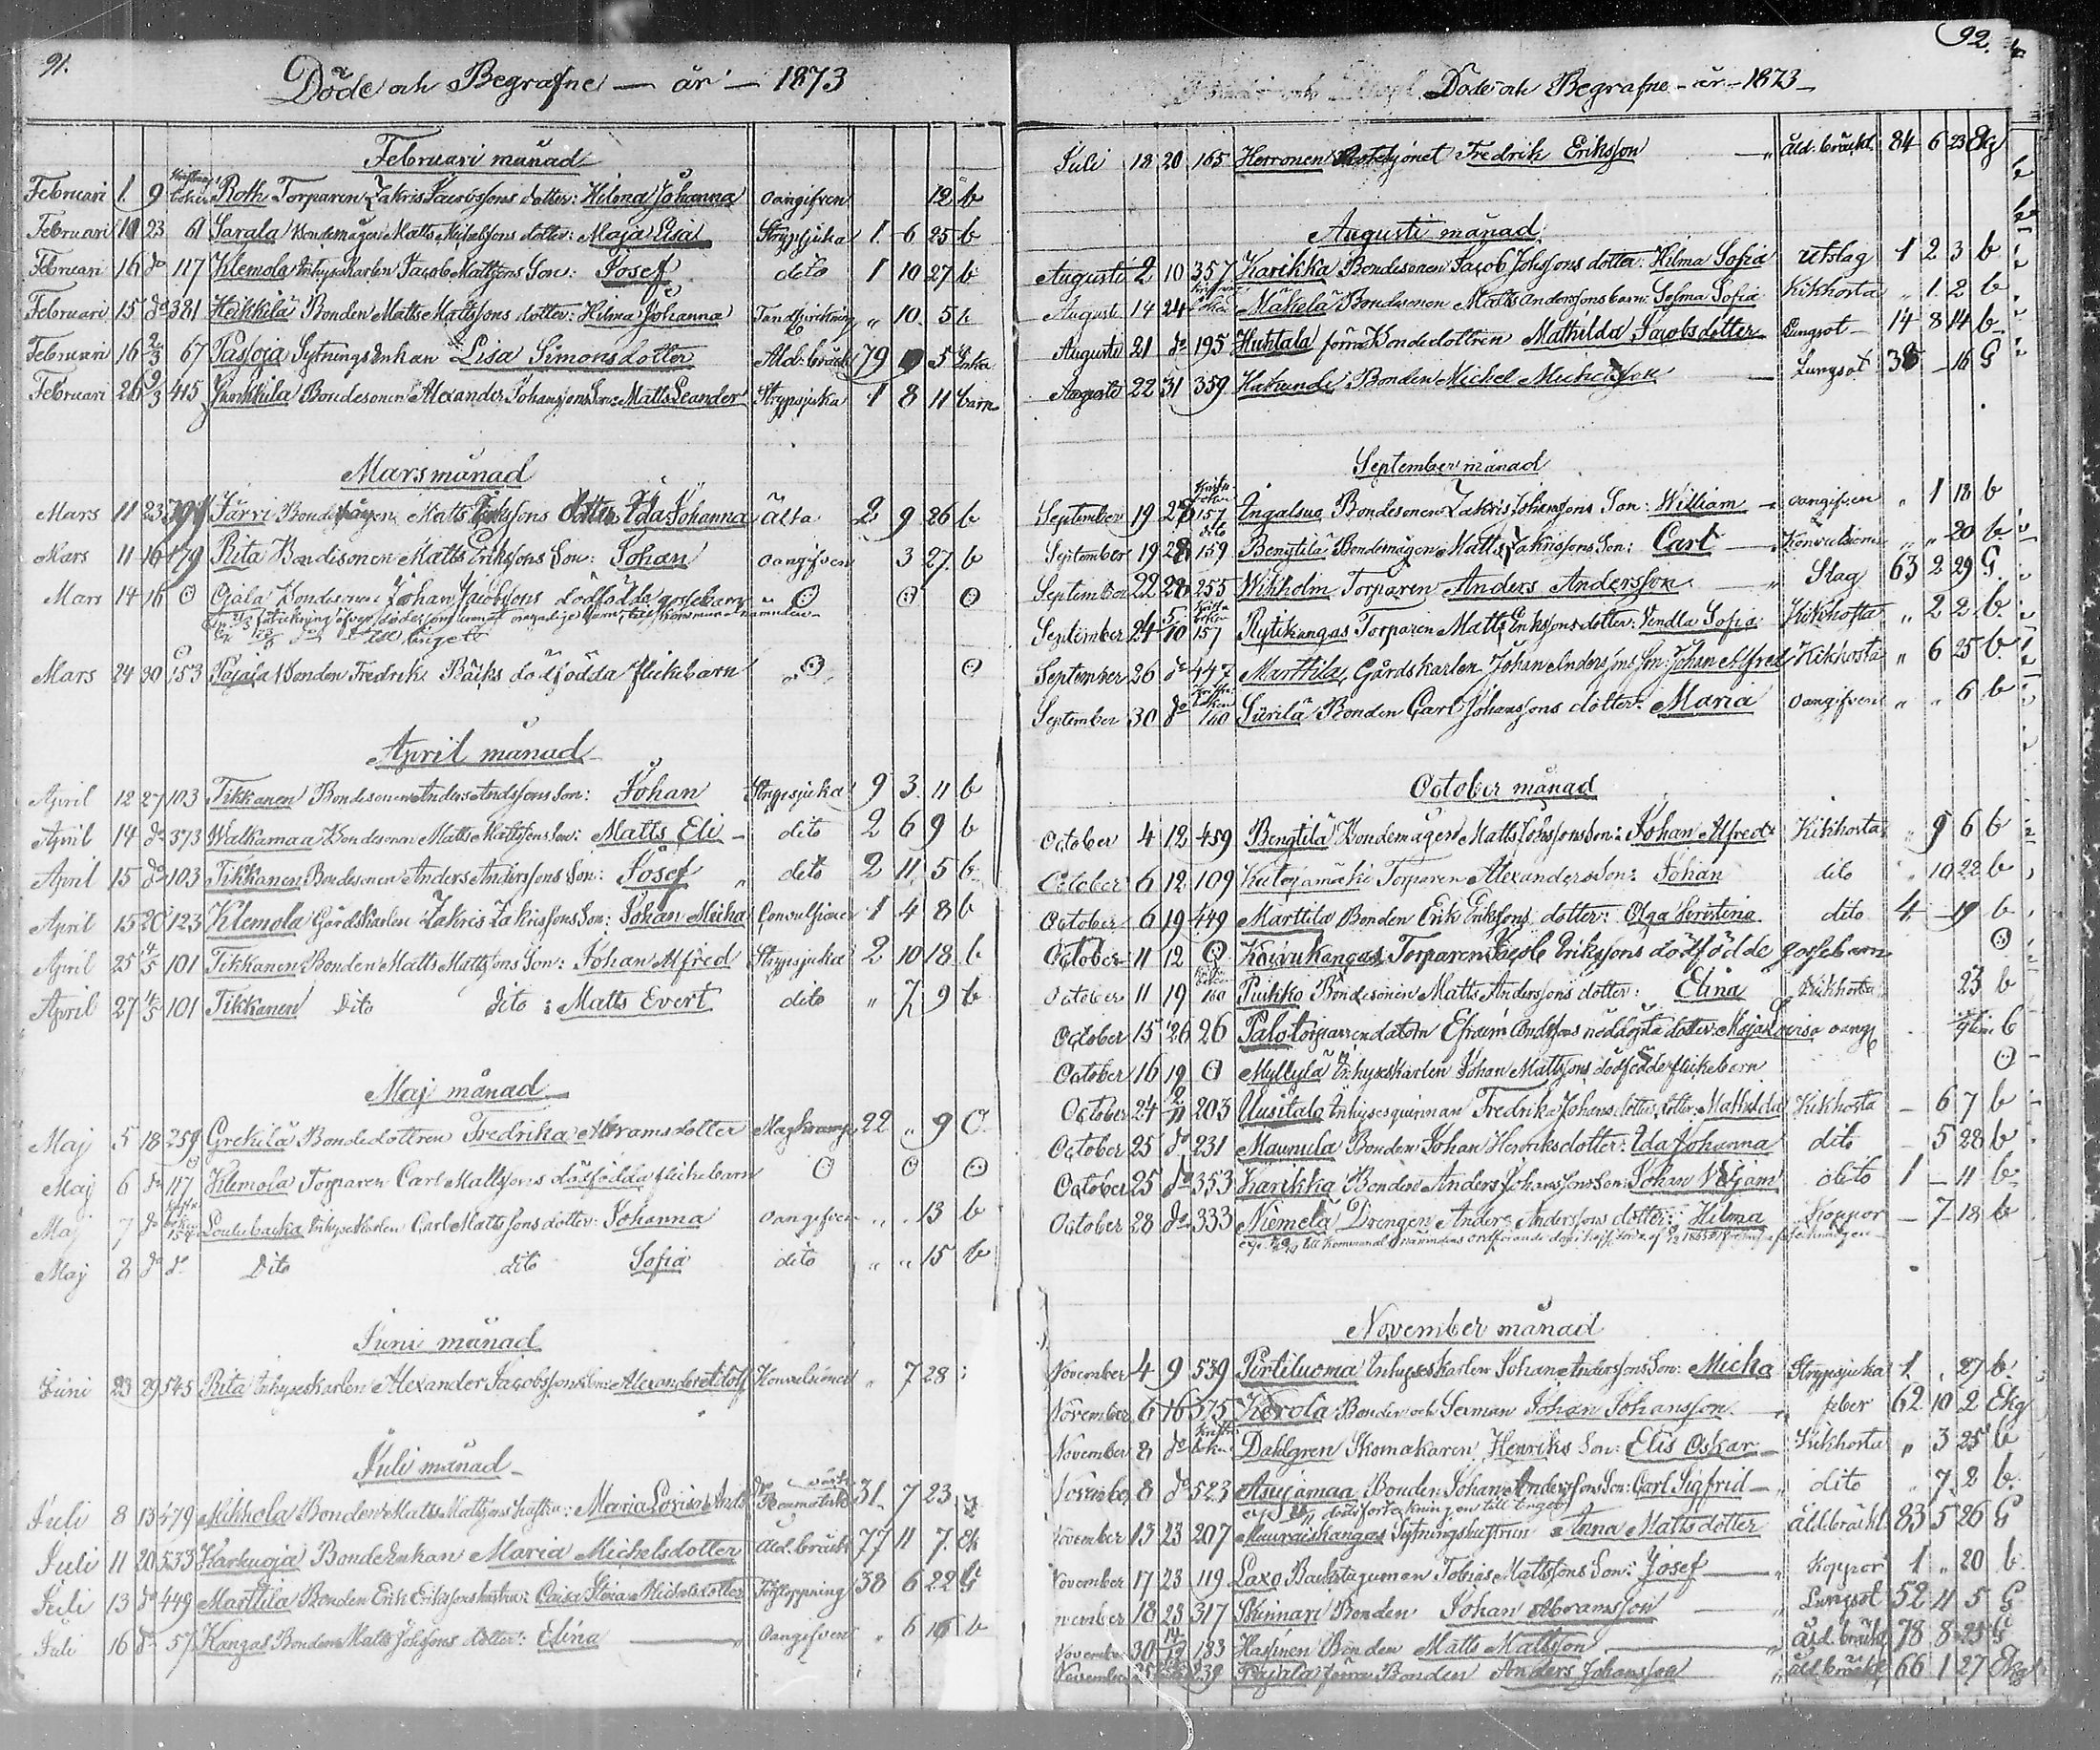 91.
Döde och Begrafne — år — 1873
Februari månad
Februari 1 9 Roth Torparen Zakris Jacobssons dotter: Hilma Johanna oangifven 12 b
Februari 11 23 61 Sarala Bondemågen Matts Michelssons dotter: Maja Lisa Strypsjuka 1 6 25 b
Februari 16 do 117 Klemola Inhyseskarlen Jacob Mattssons Son: Josef dito 1 10 27 b
Februari 15 do 381 Heikkilä Bonden Matts Mattssons dotter: Hilma Johanna Tandsprickning „ 10 5 b
Februari 16 2/3 67 Passoja Sytnings Enkan Lisa Simonsdotter Åld. bräckl 79 5 Enka
Februari 26 9/3 415 Junkkila Bondesonen Alexander Johanssons Son: Matts Leander Strypsjuka 1 8 11 barn
Mars månad
Mars 11 23 391 Järvi Bondemågen Matts Erikssons dotter Ida Johanna Älta 2 9 26 b
Mars 11 16 179 Rita Bondesonen Matts Erikssons Son: Johan oangifven 3 27 b
Mars 14 16 Ojala Bondesonen Johan Jacobssons dödfödda gossebarn
Mars 24 30 153 Pajala Bonden Fredrik Bäcks dödfödda flickebarn
April månad
April 12 27 103 Tikkanen Bondesonen Anders Anderssons Son: Johan Strypsjuka 9 3 11 b
April 14 do 373 Walkamaa Bondesonen Matts Mattssons Son: Matts Eli — dito 2 6 9 b
April 15 do 103 Tikkanen Bondesonen Anders Anderssons Son: Josef „ dito 2 11 5 b
April 15 20 123 Klemola Gårdskarlen Zakris Zakrissons Son: Johan Micha Convulsioner 1 4 8 b
April 25 4/5 101 Tikkanen Bonden Matts Mattssons Son: Johan Alfred Strypsjuka 2 10 18 b
April 27 4/5 101 Tikkanen Dito dito: Matts Evert dito „ 7 9 b
Maj månad
Maj 5 18 259 Grekilä Bondedottren Fredrika Abramsdotter Magkramp 22 „ 9 O
Maj 6 do 117 Klemola Torparen Carl Mattssons dödfödda flickebarn
Maj 7 do 154 Loukebacka Inhyseskarlen Carl Mattssons dotter: Johanna oangifven „ . 13 b
Maj 8 do do Dito dito Sofia dito „ „ 15 b
Juni månad
Juni 23 29 545 Rita Inhyseskarlen Alexander Jacobssons Son: Alexander Konvulsioner „ 7 28
Juli månad
Juli 8 13 479 Mikkola Bonden Matts Mattssons hustru: Maria Lovisa 31 7 23
Juli 11 20 533 Harkuoja Bonde Enkan Maria Michelsdotter åld. bräckl 77 11 7 Ek
Juli 13 do 449 Marttila Bonden Erik Erikssons hustru: Caisa Stina Michelsdotter Förstoppning 38 6 22 G
Juli 16 do 57 Kangas Bonden Matts Johssons dotter: Elina — „ oangifven „ 6 16 b
92.
Döde och Begrafne — år — 1873 —
Juli 18 20 165 Herronen Rotehjonet Fredrik Eriksson — „ åld. bräckl. 84 6 23 Ekg
Augusti månad
Augusti 2 10 357 Karikka Bondesonen Jacob Johssons dotter: Hilma Sofia Utslag 1 2 3 b
Augusti 14 24 Mäkelä Bondesonen Matts Anderssons barn: Selma Sofia Kikhosta „ 1 2 b
Augusti 21 do 195 Huhtala förra Bondedottren Mathilda Jacobsdotter Lungsot — 14 8 14 b
Augusti 22 31 359 Hakunde Bonden Michel Michelsson — Lungsot 38 — 16 G
September månad
September 19 28 157 Ingalsuo Bondesonen Zakris Johanssons Son: William — oangifven „ 1 18 b
September 19 28 159 Bengtilä Bondemågen Matts Zakrissons Son: Carl — Konvulsioner „ „ 20 b
September 22 28 253 Wikholm Torparen Anders Andersson — „ Slag 63 2 29 G
September 24 5/10 157 Rytikangas Torparen Matts Erikssons dotter: Vendla Sofia Kikhosta „ 2 2 b
September 26 do 447 Marttila Gårdskarlen Johan Anderssons Son: Johan Alfred Kikhosta „ 6 25 b
September 30 do 160 Siirilä Bonden Carl Johanssons dotter: Maria oangifven „ „ 6 b
October månad
October 4 12 459 Bengtilä Bondemågen Matts Johssons Son: Johan Alfred Kikhosta „ 9 6 b
October 6 12 109 Kutojamäki Torparen Alexanders Son: Johan dito „ 10 22 b
October 6 19 449 Marttila Bonden Erik Erikssons dotter: Olga Kristina dito 4 — 19 b
October 11 12 Koivukangas Torparen Jacob Erikssons dödfödde gossebarn
October 11 19 160 Puikko Bondesonen Matts Anderssons dotter: Elina Kikhosta 23 b
October 15 26 26 Palo torparen Efraim Andssons nöddöpta dotter: Maja Lovisa oangf b
October 16 19 Myllylä Inhyseskarlen Johan Mattssons dödfödde flickebarn
October 24 2/11 203 Uusitalo Inhysesqvinnan Fredrika Johansdotters dotter: Mathilda Kikhosta — 6 7 b
October 25 do 231 Maunula Bonden Johan Henriks dotter: Ida Johanna dito — 5 28 b
October 25 do 353 Karikka Bonden Anders Johanssons Son: Johan Viljam dito 1 — 11 b
October 28 do 333 Niemelä Drengen Anders Anderssons dotter: Hilma Koppor — 7 18 b
November månad
November 4 9 539 Pertiluoma Inhyseskarlen Johan Anderssons Son: Micha Strypsjuka 1 „ 27 b
November 6 16 575 Kerola Bonden och Sexman Johan Johansson — „ feber 62 10 2 Ekg
November 8 do Dahlgren Skomakaren Henriks Son: Elis Oskar — Kikhosta „ 3 25 b
November 8 do 523 Asujamaa Bonden Johan Anderssons Son: Carl Sigfrid — „ dito „ 7 2 b
November 13 23 207 Muuraiskangas Sytningshustrun Anna Mattsdotter åld. bräckl 83 5 26 G
November 17 23 119 Laxo Backstuguman Tobias Mattssons Son: Josef — „ Koppor 1 „ 20 b
November 18 23 317 Skinnari Bonden Johan Abramsson — „ Lungsot 52 11 5 G
November 30 14/12 183 Hassinen Bonden Matts Mattsson — „ åld. bräckl 78 8 25 G
November 239 Pajala förra Bonden Anders Johansson „ åld. bräckl 66 1 27